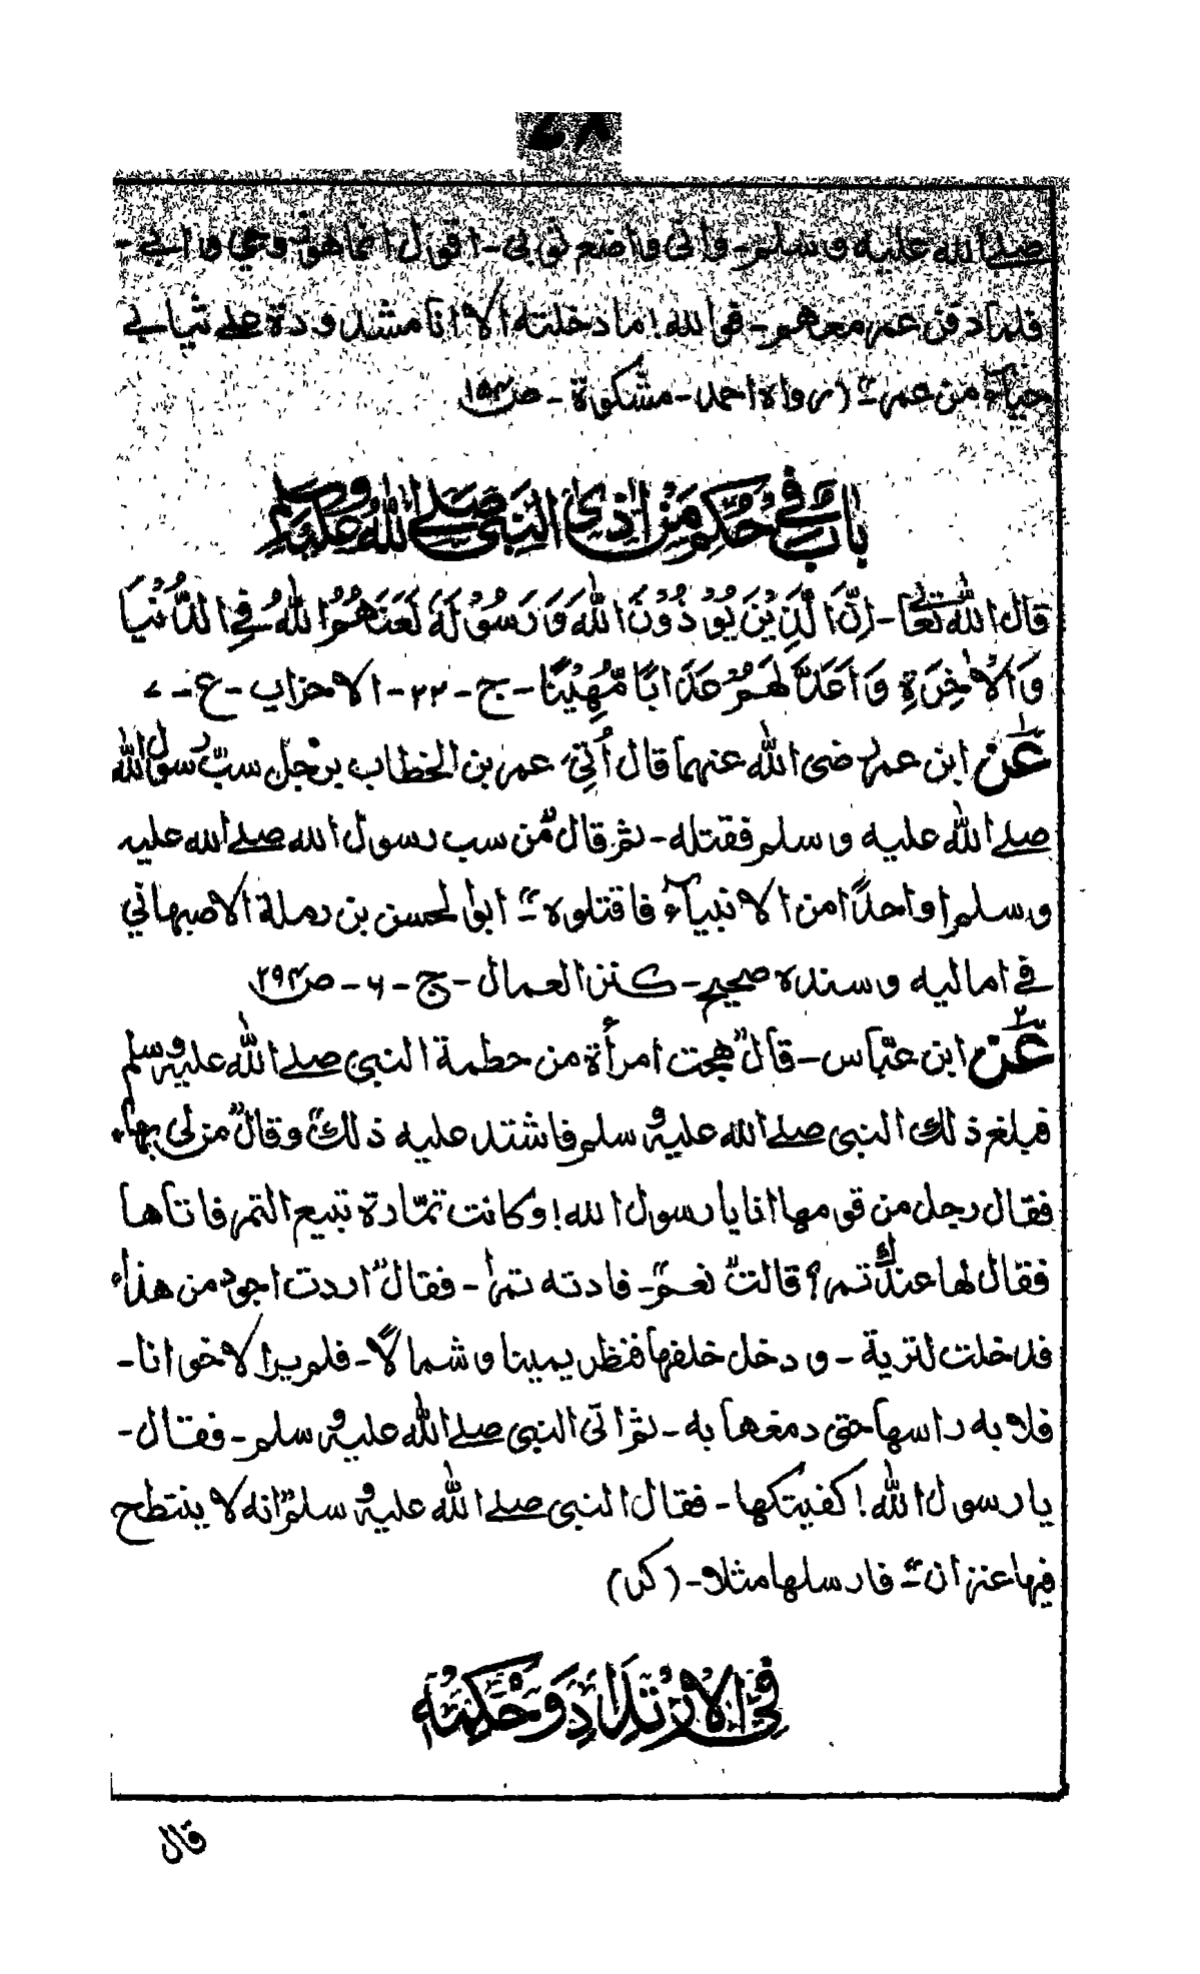 صلے الله علیه وسلم۔ وانی واضع ثوبی۔ اقول انما هو زوجی وابی۔
فلما دفن عمر معهم۔ فوالله! ما دخلته الا انا مشدودة علے ثیابی
حیآءً من عمر۔" (رواه احمد۔ مشکوة۔ ص۱۵۴
بابٌ فی حُکمِ مَنْ اٰذی النَبی صَلے اللهُ عَلَیهِ وَسلم
قال الله تعالےٰ۔ اِنَّ الَّذِیْنَ یُؤْذُوْنَ اللهَ وَرَسُوْلَهٗ لَعَنَهُمُ اللهُ فِی الدُّنْیَا
وَالْاٰخِرَةِ وَاَعَدَّ لَهُمْ عَذَابًا مُّهِیْنًا۔ ج۔ ۲۲۔ الاحزاب۔ ع۔ ۷
عَن ابن عمر رضی الله عنهما قال اُتِیَ عمر بن الخطاب برجل سبّ رسول الله
صلے الله علیه وسلم فقتله۔ ثم قال "من سب رسول الله صلے الله علیه
وسلم او احدًا من الانبیآء فاقتلوه" ابوالحسن بن رملة الاصبهانی
فی امالیه وسنده صحیح۔ کنز العمال۔ ج۔ ۶۔ ص۲۹۴
عَن ابن عبّاس۔ قال "هجت امرأة من خطمة النبی صلے الله علیه وسلم
فبلغ ذلك النبی صلے الله علیه وسلم فاشتد علیه ذلك" وقال "من لی بها"
فقال رجل من قومها انا یا رسول الله! وکانت تمّارة تبیع التمر فاتاها
فقال لها عندك تمر؟ قالت "نعم"۔ فارته تمرا۔ فقال "اردت اجود من هذا"
فدخلت لتریه۔ ودخل خلفها فنظر یمینا وشمالًا۔ فلم یر الاخوانا۔
فلا به راسها حتی دمغها به۔ ثم اتی النبی صلے الله علیه وسلم۔ فقال۔
یا رسول الله! کفیتکها۔ فقال النبی صلے الله علیه وسلم "انه لا ینتطح
فیها عنزان" فارسلها مثلا۔ (کر)
فی الاِرْتِدَادِ وَحُکمِهٖ
قال